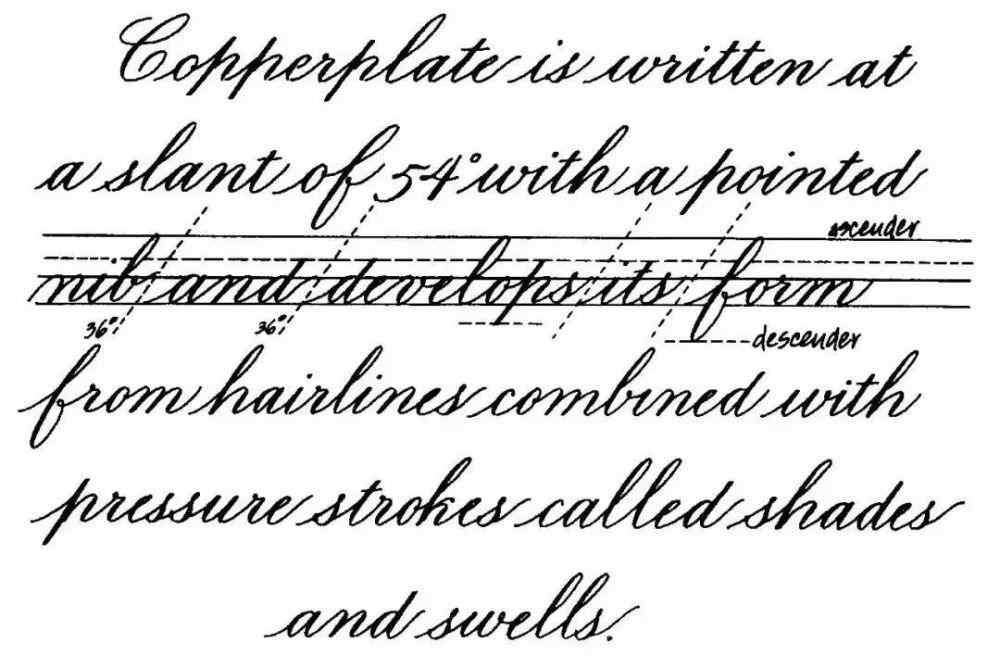 Copperplate is written at
a slant of 54° with a pointed
ascender
nib and develops its form
36° 36° descender
from hairlines combined with
pressure strokes called shades
and swells.